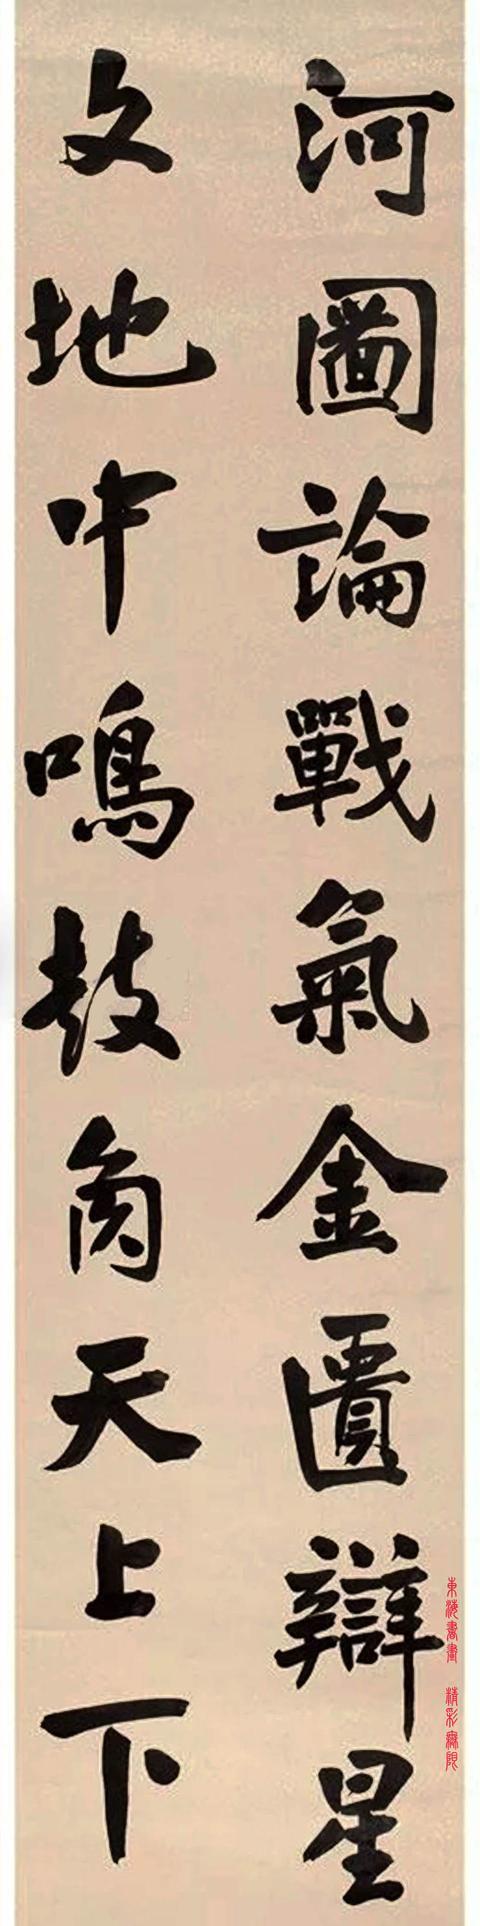 河圖論戰氣金匱辯星
文地中鳴鼓角天上下
東海書畫 精彩無限